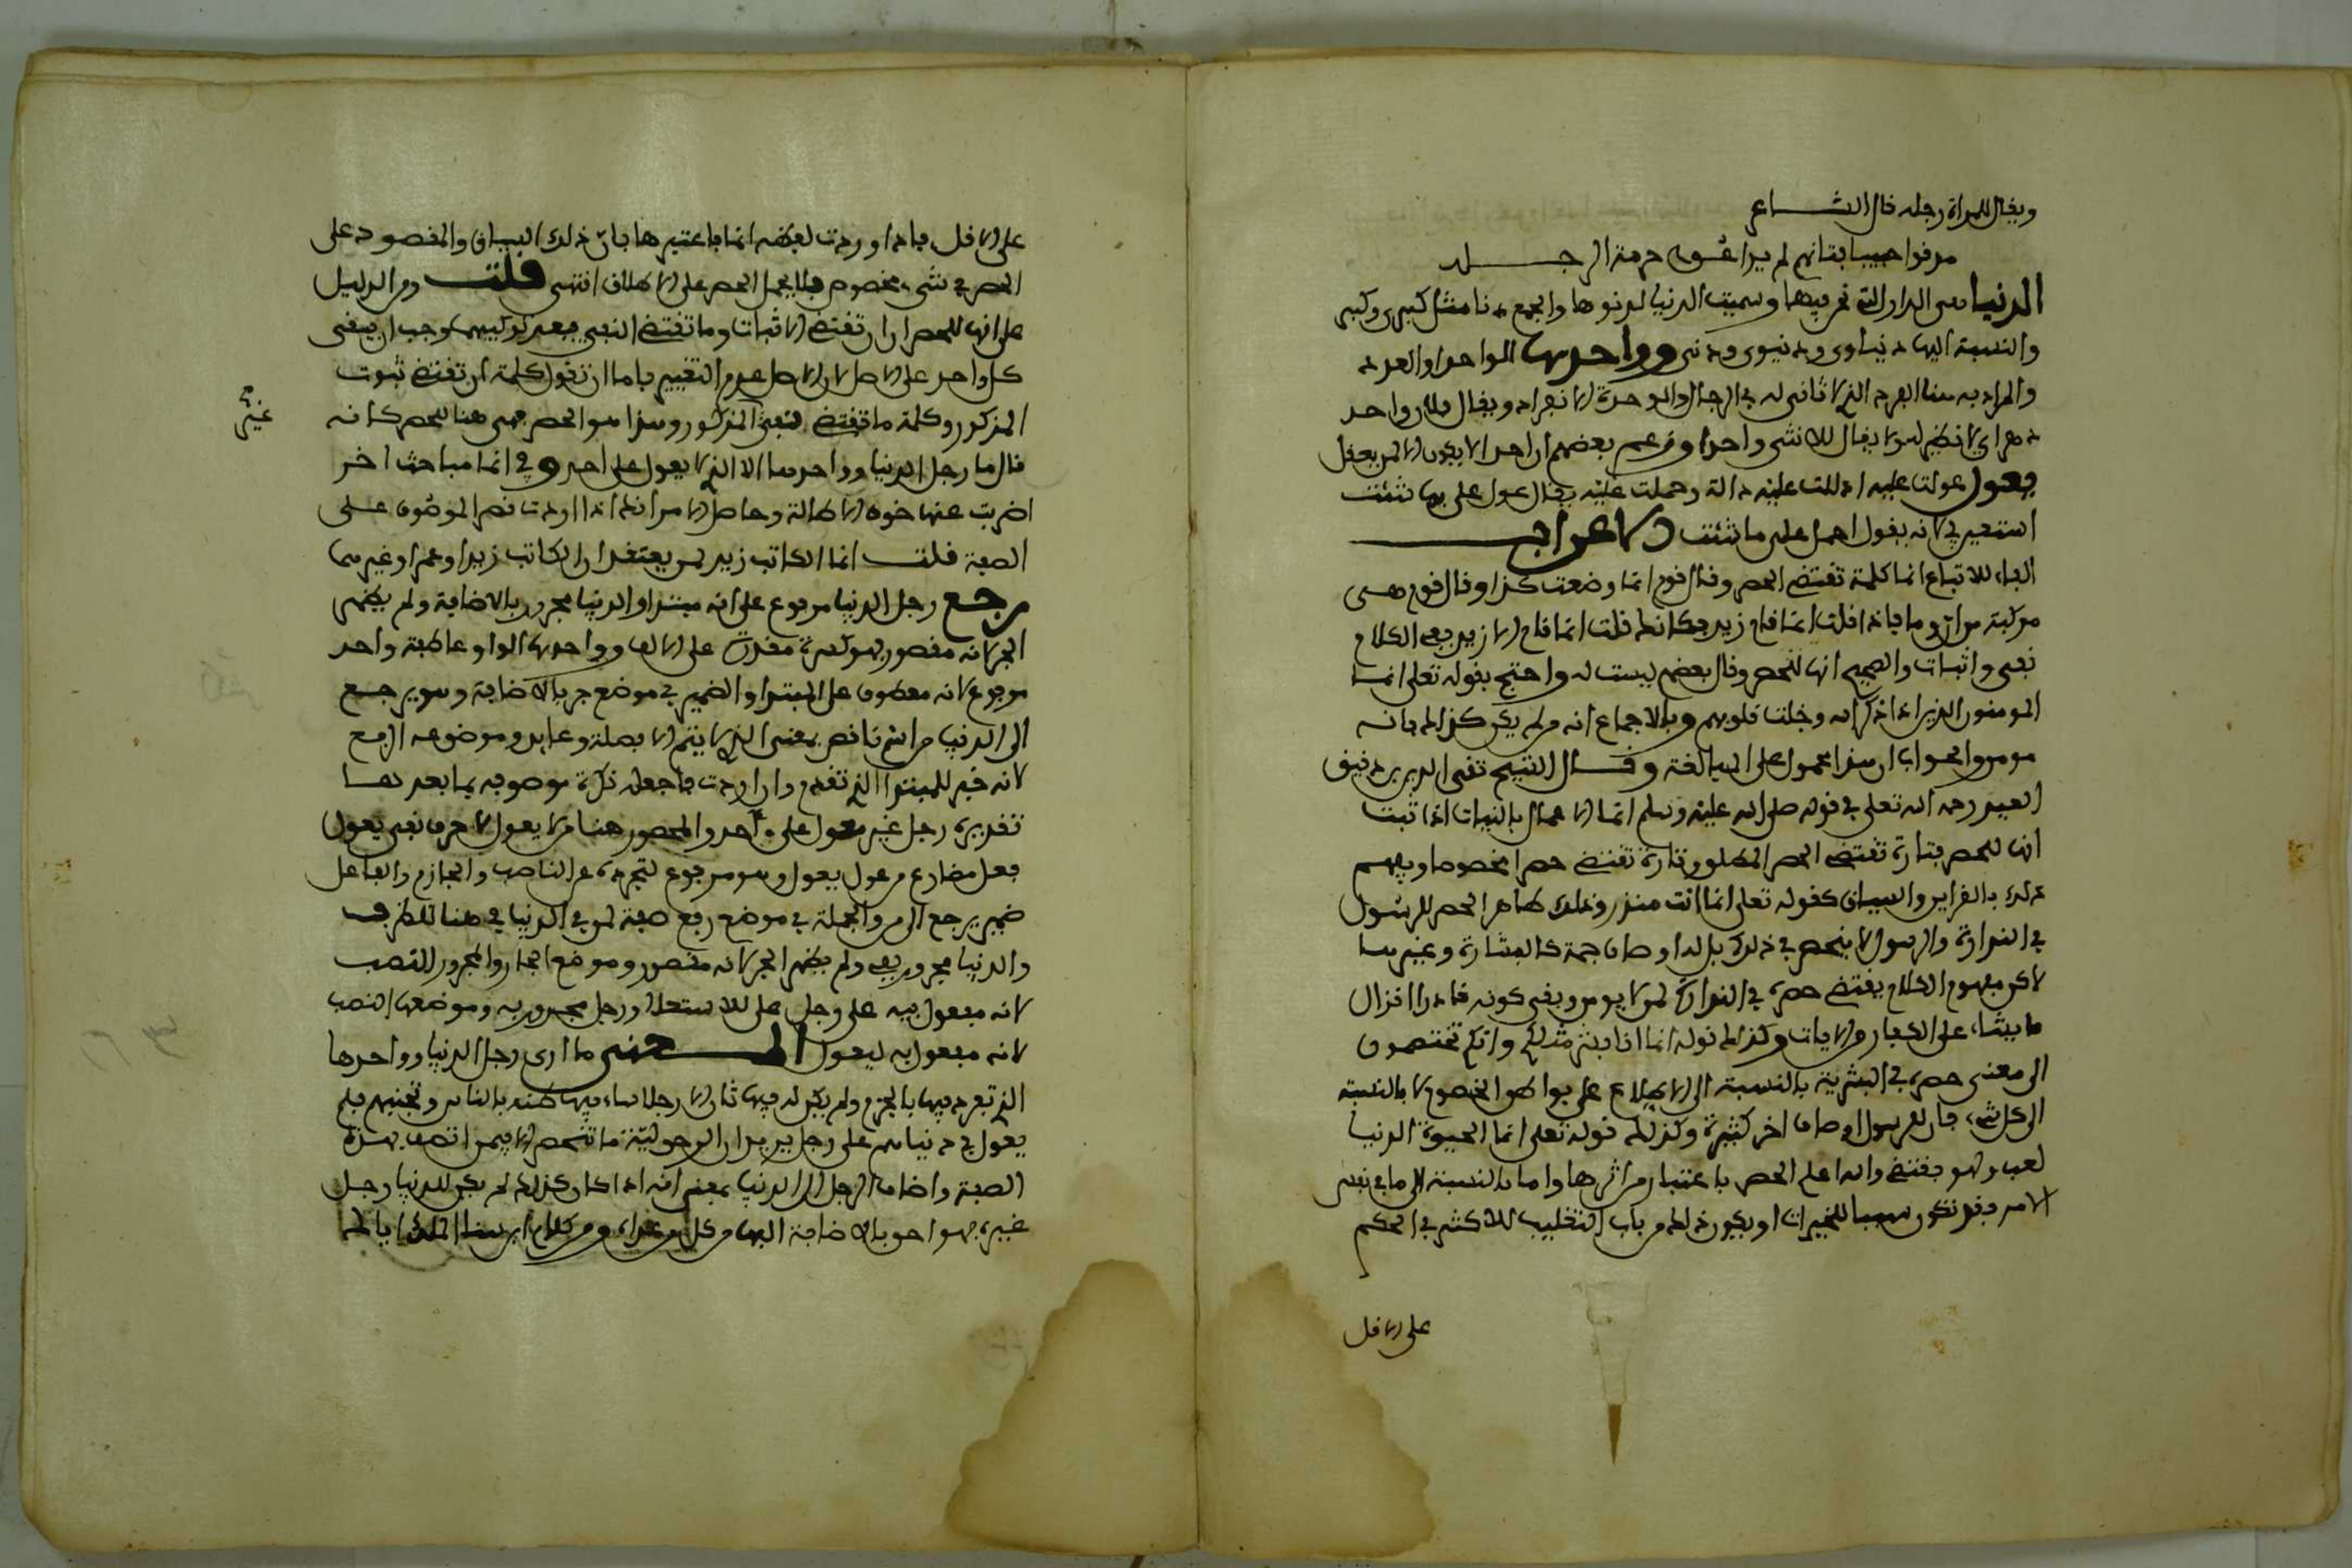 ويقال للمراة رجلة قال الشاعر
مزقوا جيب فتاتهم لم يراعوا حرمة الرجله
الدنيا هي الدار التي نحن فيها وسميت الدنيا لدنوها والجمع دنا مثل كبرى وكبر
والنسبة اليها دنياوى ودنيوى ودنيى وواحدها الواحد اول العدد
والمراد به هنا الفرد الذي لا ثاني له في الرجال والوحدة الانفراد ويقال فلان واحد
دهره اي لا نظير له ولا يقال للانثى واحد اوزعم بعضهم ان احدا لا يكون الا لمن يعقل
يعول عولت عليه ادللت عليه دالة وحملت عليه يقال عول علي بما شئت
استعن بي كانه يقول احمل علي ما شئت الاعراب
الفاء للاتباع انما كلمة تقتضي الحصر وقال قوم انما وضعت كذا وقال قوم هي
مركبة من ان وما فاذا قلت انما قام زيد فكانك قلت انما قام الا زيد ففي الكلام
نفي واثبات والصحيح انها للحصر وقال بعضهم ليست له واحتج بقوله تعلى انما
المومنون الذين اذا ذكر الله وجلت قلوبهم وبالاجماع انه من لم يكن كذلك فانه
مومن والجواب ان هذا محمول على المبالغة وقال الشيخ تقي الدين بن دقيق
العيد رحمه الله تعلى في قوله صلى الله عليه وسلم انما الاعمال بالنيات اذا ثبت
انها للحصر فتارة تقتضي الحصر المطلق وتارة تقتضي حصرا مخصوصا ويفهم
ذلك بالقراين والسياق كقوله تعلى انما انت منذر وظاهر ذلك الحصر للرسول
في النذارة والرسول لا ينحصر في ذلك بل له اوصاف جمة كالبشارة وغيرها
لاكن مفهوم الكلام يقتضي حصره في النذارة لمن لا يومن ونفي كونه قادرا انزال
ما يشاء على الكفار من الايات وكذلك قوله انما انا بشر مثلكم وانكم تختصمون
الي معنى حصره في البشرية بالنسبة الى الاطلاع على بواطن الخصوم لا بالنسبة
الى كل شيء فان للرسول اوصافا اخر كثيرة وكذلك قوله تعلى انما الحيوة الدنيا
لعب ولهو يقتضي والله اعلم الحصر باعتبار من اثرها واما بالنسبة الى ما في نفس
الامر فقد تكون سببا للخيرات او يكون ذلك من باب التغليب للاكثر في الحكم
على الاقل
على الاقل فاذا وردت لفظة انما فاعتبرها فان ذلك السياق والمقصود على
الحصر في شيء مخصوص فلا يحمل الحصر على الاطلاق انتهى قلت ومن الدليل
على انها للحصر ان ان تقتضي الاثبات وما تقتضي النفي فبعد تركيبهما وجب ان يبقى
كل واحد على الاصل لان الاصل عدم التغيير فاما ان نقول كلمة ان تقتضي ثبوت
المذكور وكلمة ما تقتضي نفي المذكور وهذا هو الحصر فهي هنا للحصر كانه
غير
قال ما رجل الدنيا وواحدها الا الذي لا يعول على احد وفي انما مباحث اخر
اضربت عنها خوف الاطالة وحاصل الامر انك اذا اردت قصر الموصوف على
الصفة قلت انما الكاتب زيد لمن يعتقد ان الكاتب زيد او عمرا وغيرهما
مرجع رجل الدنيا مرفوع على انه مبتدا والدنيا مجرور بالاضافة ولم يظهر
الجر لانه مقصور فهو كسرة مقدرة على الالف وواحدها الواو عاطفة واحد
مرفوع لانه معطوف على المبتدا والضمير في موضع جر بالاضافة وهو يرجع
الى الدنيا من اسم ناقص بمعنى الذي لا يتم الا بصلة وعايد وموضعه الرفع
لانه خبر للمبتدا الذي تقدم وان اردت فاجعله نكرة موصوفه بما بعدها
تقديره رجل غير معول على واحد والمحصور هنا من لا يعول لا حرف نفي يعول
فعل مضارع من عول يعول وهو مرفوع لتجرده عن الناصب والجازم والفاعل
ضمير يرجع الى من والجملة في موضع رفع صفة لمن في الدنيا في هنا للظرف
والدنيا مجرور بفي ولم يظهر الجر لانه مقصور وموضع الجار والمجرور النصب
لانه مفعول فيه على رجل على للاستعلا ورجل مجرور به وموضعها النصب
لانه مفعول به ليعول المعنى ما ارى رجل الدنيا وواحدها
الذي تفرد فيها بالحزم ولم يكن له فيها ثان الا رجلا ساء فيها ظنه بالناس وتجنبهم فلم
يعول في دنياه على رجل يريد ان الرجولية ما تنحصر الا فيمن اتصف بهذه
الصفة واضاف الرجل الى الدنيا بمعنى انه اذا كان كذلك لم يكن للدنيا رجل
غيره فهو احق بالاضافة اليها من كل من عداه ومن كلام ابن سنا الملك اياك